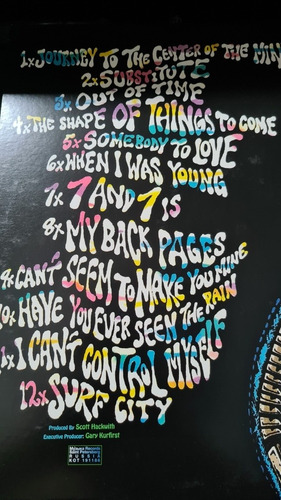 1x JOURNEY TO THE CENTER OF THE MIN
2x SUBSTITUTE
3x OUT OF TIME
4x THE SHAPE OF THINGS TO COME
5x SOMEBODY TO LOVE
6x WHEN I WAS YOUNG
7x 7 AND 7 IS
8x MY BACK PAGES
9x CAN'T SEEM TO MAKE YOU MINE
10x HAVE YOU EVER SEEN THE RAIN
1x I CAN'T CONTROL MYSELF
12x SURF CITY
Produced By Scott Hackwith
Executive Producer: Gary Kurfirst
Saint Petersburg
RUSSIA